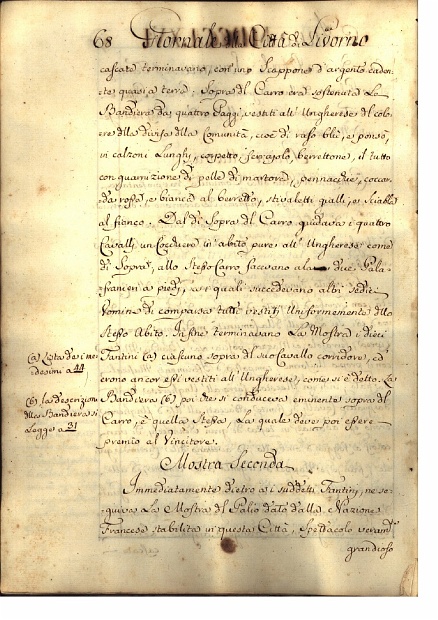 68 Giornale Città di Livorno
cascate terminavano, con uno Scappone d'argento caden-
te quasi a terra; Sopra del Carro era sostenuta La
Bandiera da quattro Paggi, vestiti all'Ungherese del colo-
re della divisa della Comunità, cioè di raso blù, e ponsò,
in calzoni Lunghi, corpetto, ferrajolo, berrettone, il tutto
con guarnizione di pelle di martora, pennacchie, coccar-
da rossa, e bianca al berretto, stivaletti gialli, e sciabla
al fianco. Dal di Sopra del Carro guidava i quattro
Cavalli un Cocchiere in abito pure all'Ungherese come
di Sopra, allo Stesso Carro facevano ala due Pala-
franieri a piedi, a i quali succedevano altri sedici
Uomini di comparsa tutti vestiti Uniformemente dello
Stesso Abito. In fine terminavano La Mostra i dieci
Fantini (a) ciascuno sopra del suo Cavallo corridore, ed
erono ancor essi vestiti all'Ungherese, come si è detto. La
Bandiera (b) poi che si conduceva eminente sopra del
Carro, è quella Stessa, La quale deve poi essere
premio al Vincitore.
(a) Lista de i me-
desimi a 44
(b) la descrizione
della Bandiera si
Legge a 31
Mostra Seconda
Immediatamente dietro a i suddetti Fantini, ne se-
guiva La Mostra del Palio dato dalla Nazione
Francese stabilita in questa Città, Spettacolo veramte
grandioso